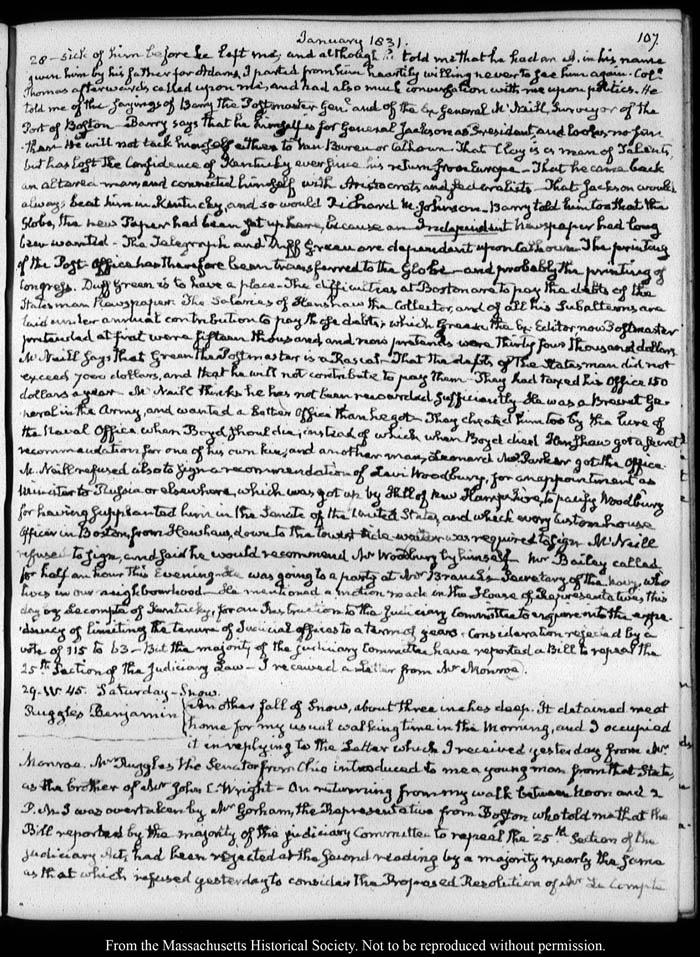 January 1831.
107.
28 – sick of him before he left me; and although he told me that he had an A. in his name
given him by his father for Adams, I parted from him heartily willing never to see him again. Col.
Thomas afterwards called upon me, and had also much conversation with me upon politics. He
told me of the sayings of Barry the Postmaster Genl. and of the Ex General McNeill, Surveyor of the
Port of Boston – Barry says that he himself is for General Jackson as President, and looks no far
ther. He will not tack himself either to Van Buren or Calhoun. That Clay is a man of Talents,
but has lost the Confidence of Kentucky ever since his return from Europe – That he came back
an altered man, and connected himself with Aristocrats, and federalists – That Jackson would
always beat him in Kentucky, and so would Richard M. Johnson – Barry told him too that the
Globe, the new Paper had been set up here, because an Independent Newspaper had long
been wanted – The Telegraph and Duff Green are dependent upon Calhoun – The printing
of the Post-Office has therefore been transferred to the Globe – and probably the printing of
Congress. Duff Green is to have a place – The difficulties at Boston are to pay the debts of the
Statesman Newspaper. The Salaries of Henshaw the Collector, and of all his Subalterns are
laid under annual contribution to pay those debts; which Greene the Ex Editor, now Postmaster
pretended at first were fifteen thousand, and now pretends were thirty four thousand dollars
McNeill says that Green the Postmaster is a Rascal – That the debts of the Statesman did not
exceed 7000 dollars, and that he will not contribute to pay them – They had taxed his Office 150
dollars a year – McNeill thinks he has not been rewarded sufficiently – He was a Brevet Ge
neral in the Army, and wanted a better Office than he got – They cheated him too by the lure of
the Naval Office when Boyd should die; instead of which when Boyd died Henshaw got a secret
recommendation for one of his own kin; and another man, Leonard M. Parker got the Office.
McNeill refused also to sign a recommendation of Levi Woodbury, for an appointment as
Minister to Russia or elsewhere, which was got up by Hill of New Hampshire, to pacify Woodbury
for having supplanted him in the Senate of the United States, and which every Custom house
Officer in Boston, from Henshaw, down to the lowest tide waiter was required to sign – McNeill
refused to sign, and said he would recommend Mr Woodbury by himself – Mr Bailey called
for half an hour this Evening – He was going to a party at Mr Branch's Secretary of the Navy, who
lives in our neighbourhood – He mentioned a motion made in the House of Representatives this
day by Lecompte of Kentucky, for an Instruction to the Judiciary Committee to enquire into the expe
diency of limiting the tenure of Judicial offices to a term of years. Consideration rejected by a
vote of 115 to 63 – But the majority of the Judiciary Committee have reported a Bill to repeal the
25th. Section of the Judiciary Law – I received a Letter from Mr Monroe.
29. IV. 45. Saturday – Snow.
Ruggles Benjamin
Another fall of Snow, about three inches deep. It detained me at
home for my usual walking time in the Morning, and I occupied
it in replying to the Letter which I received yesterday from Mr
Monroe. Mr Ruggles the Senator from Ohio introduced to me a young man from that State,
as the brother of Mr John C. Wright – On returning from my walk between Noon and 2
P.M. I was overtaken by Mr Gorham, the Representative from Boston who told me that the
Bill reported by the majority of the judiciary Committee to repeal the 25th Section of the
Judiciary Act, had been rejected at the second reading by a majority nearly the same
as that which refused yesterday to consider the Proposed Resolution of Mr Le Compte
From the Massachusetts Historical Society. Not to be reproduced without permission.